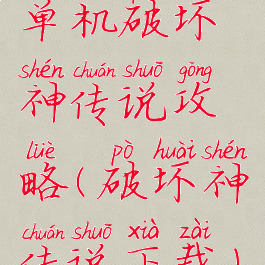 单机破坏
shén chuán shuō gōng
神传说攻
lüè pò huài shén
略(破坏神
chuán shuō xià zài
传说下载)